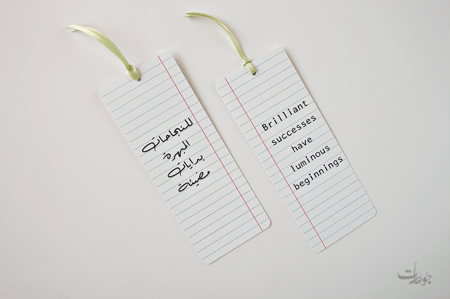 للنجاحات
البهرة
بدايات
مضيئة
Brilliant
successes
have
luminous
beginnings